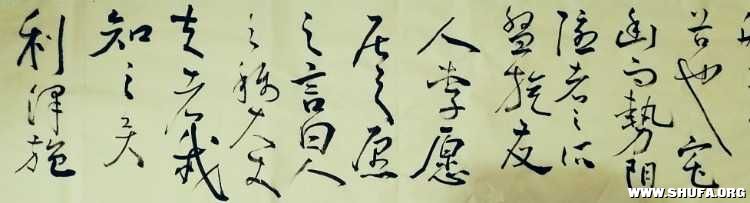 谷也宅
幽而勢阻
隱者之所
盤旋友
人李愿
居之愿
之言曰人
之稱大丈
夫者我
知之矣
利澤施
WWW.SHUFA.ORG